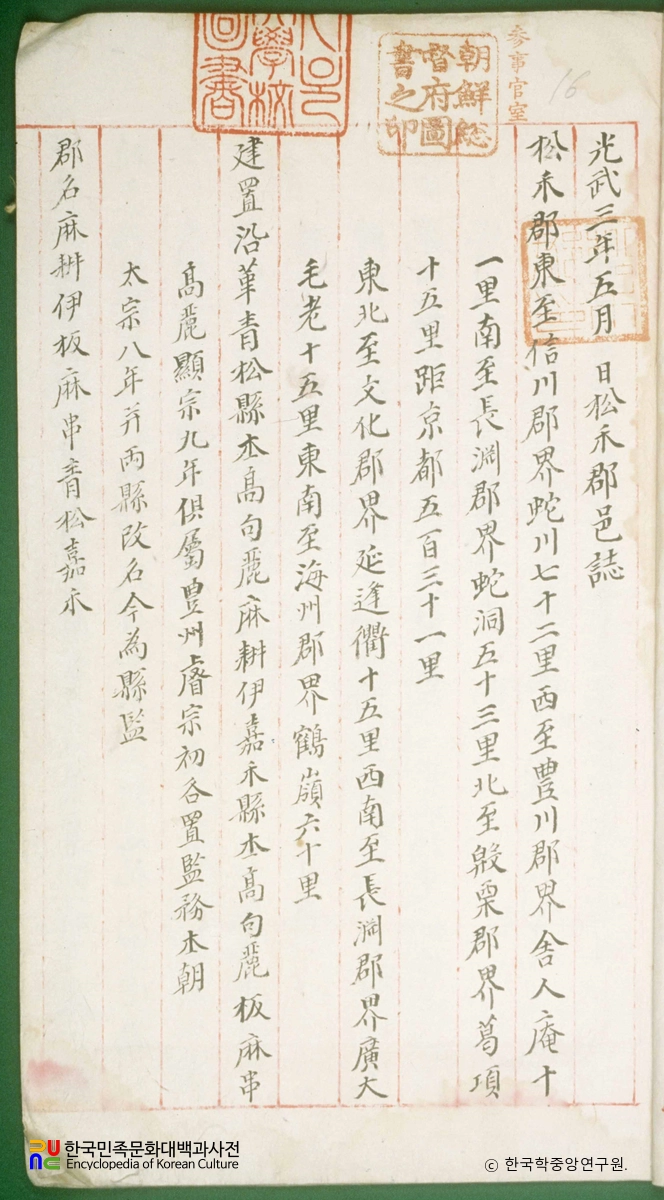 光武三年五月 日松禾郡邑誌
松禾郡東至信川郡界蛇川七十二里西至豊川郡界舍人庵十
一里南至長淵郡界蛇洞五十三里北至殷栗郡界葛項
十五里距京都五百三十一里
東北至文化郡界延逢衢十五里西南至長淵郡界廣大
毛老十五里東南至海州郡界鶴嶺六十里
建置沿革青松縣本高句麗麻耕伊嘉禾縣本高句麗板麻串
高麗顯宗九年俱屬豊州睿宗初各置監務本朝
太宗八年并兩縣改名今為縣監
郡名麻耕伊板麻串青松嘉禾
參事官室
朝鮮総
督府圖
書之印
學校
圖書
16
한국민족문화대백과사전
Encyclopedia of Korean Culture
ⓒ 한국학중앙연구원.